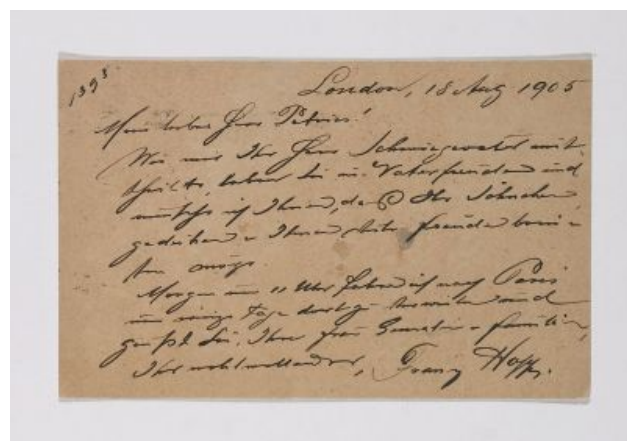 1393
London, 18 Aug 1905
Mein lieber Herr Petrics!
Wie mir Ihr Herr Schwiegervater mit-
theilte, leben Sie in Vaterfreuden und
wünsche ich Ihnen, daß Ihr Söhnchen
gedeihen u Ihnen Freude berei-
ten möge
Morgen um 11 Uhr fahre ich nach Paris
um einige Tage dort zu und
Sie, Ihre Frau Gemalin u Familie,
Ihr wohlwollender, Franz Hopp.